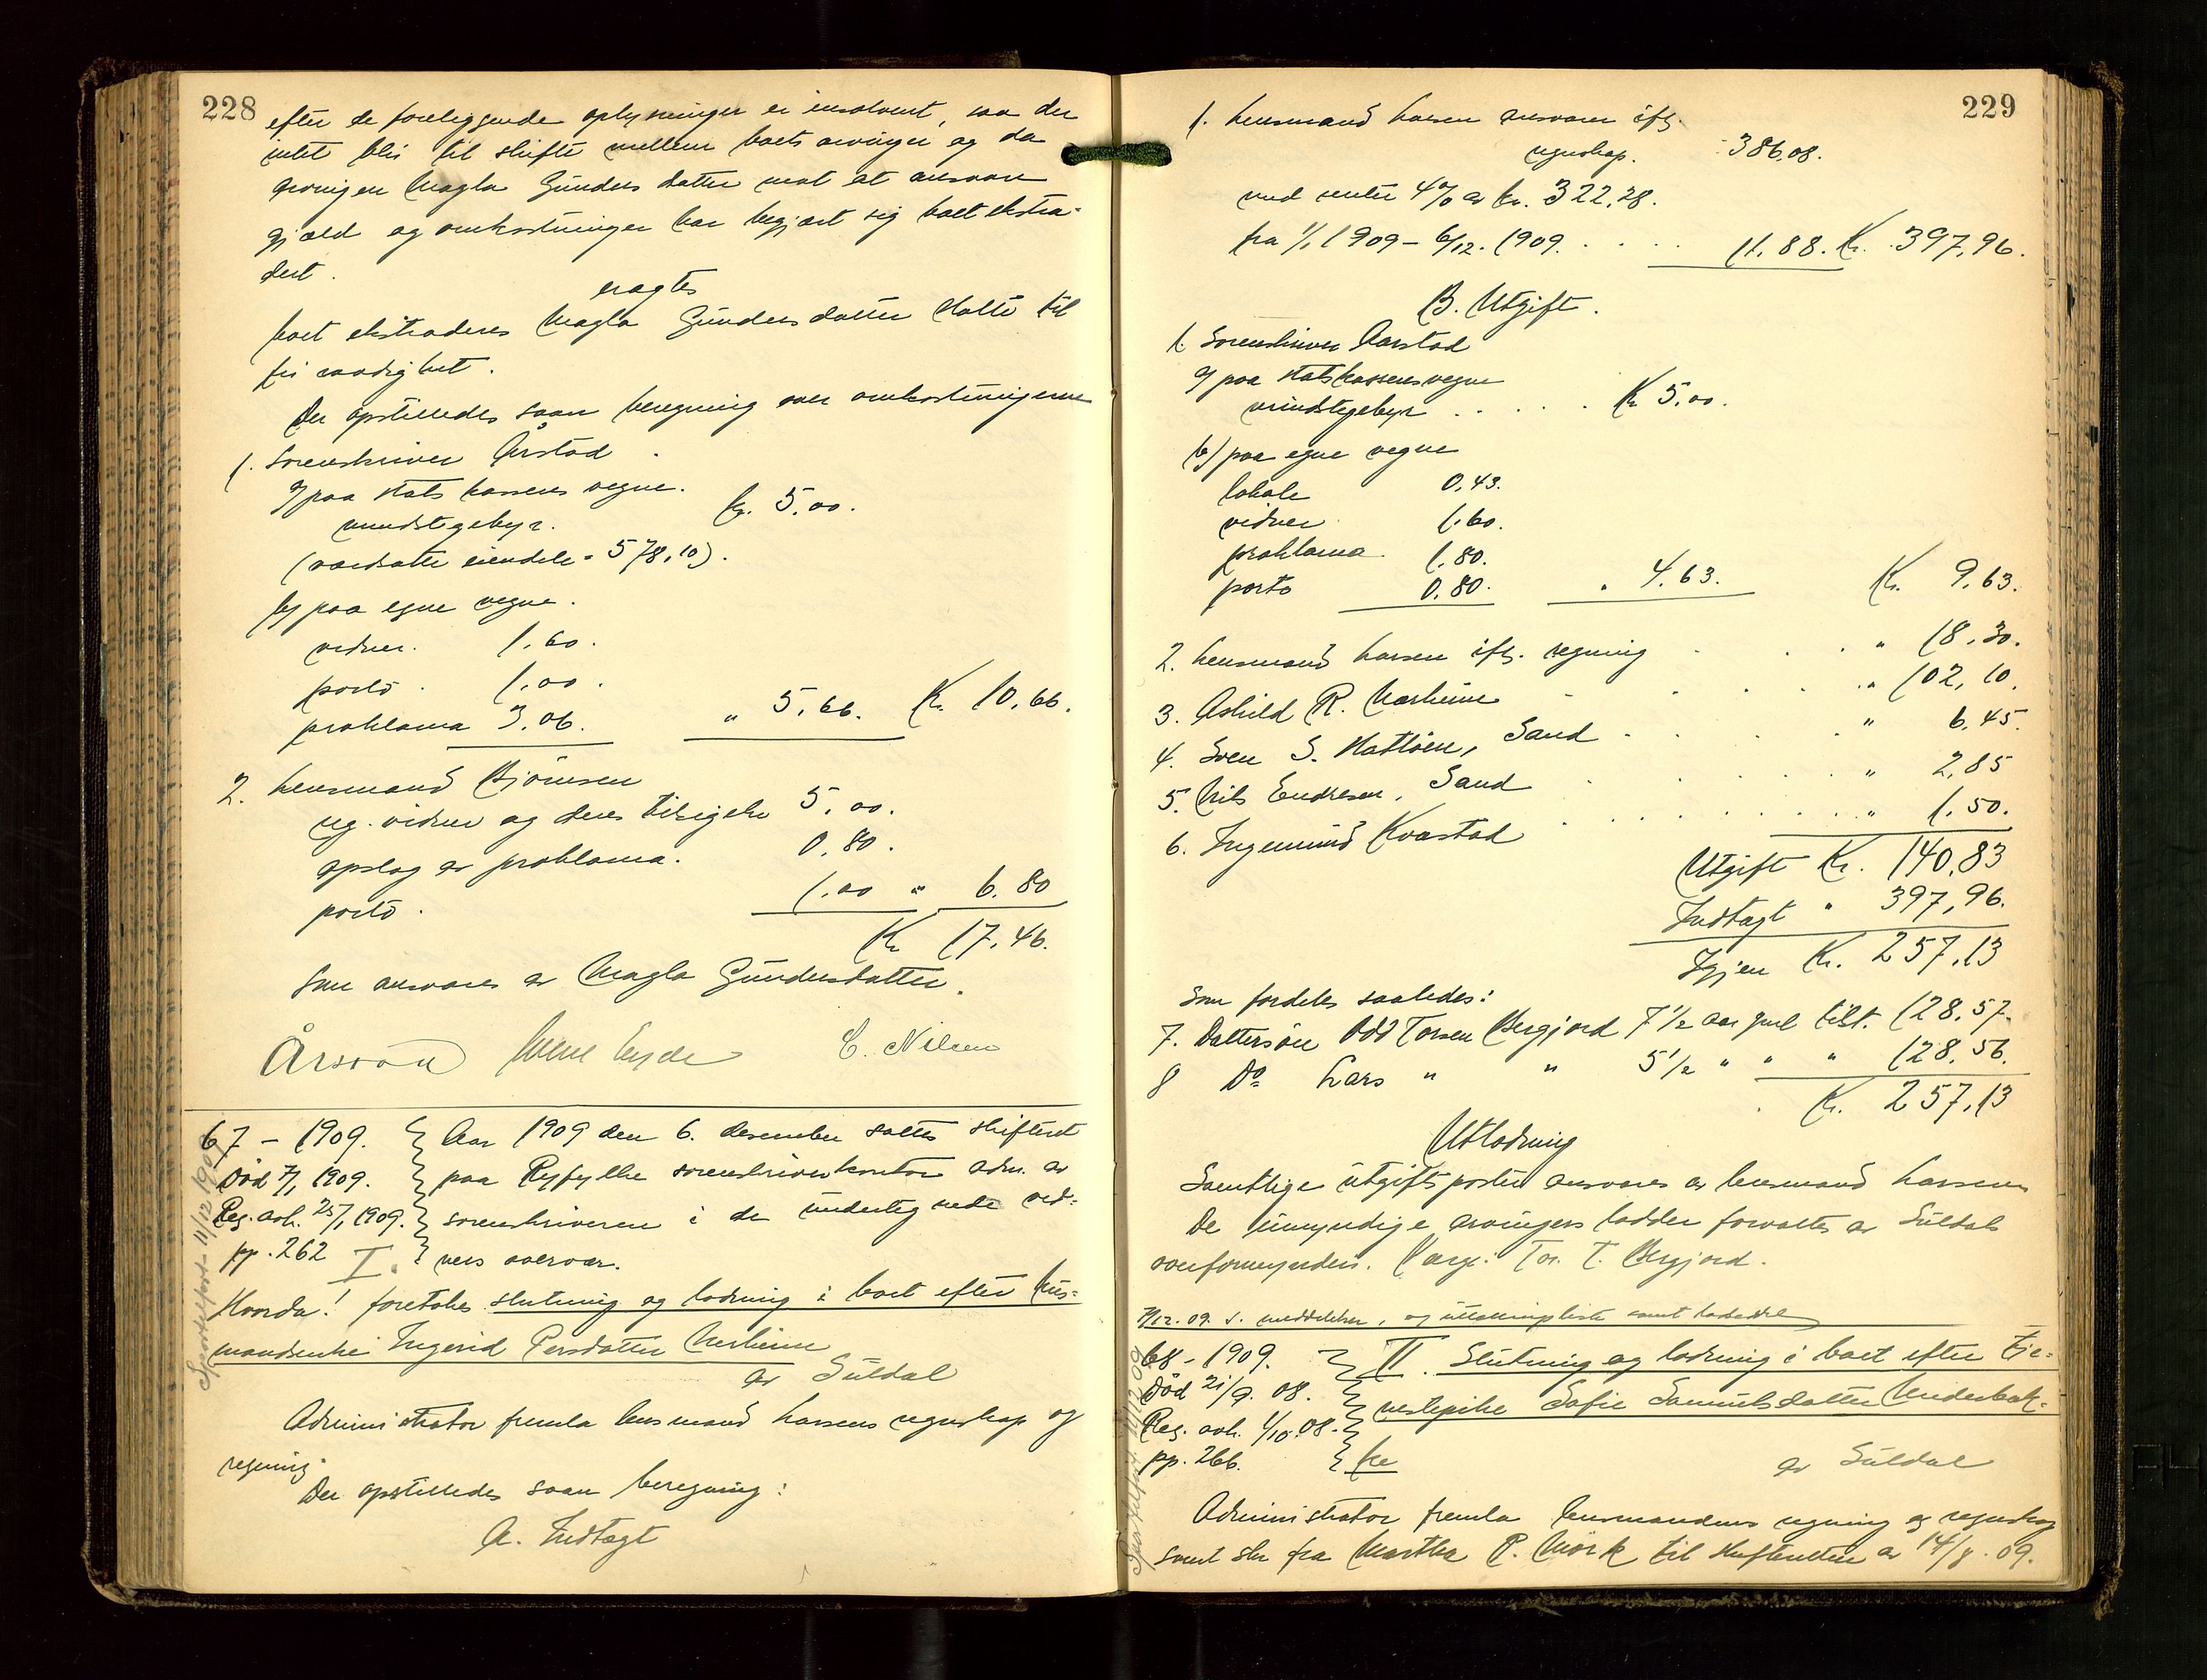 228
efter de foreliggende oplysninger er insolvent, saa der
intet blir til skifte mellem boets arvinger og da
arvingen Magla Gundersdatter mot at ansvare
gjæld og omkostninger har begjært sig boet ekstra-
dert.
eragtes
boet ekstraderes Magla Gundersdatter til
fri raadighet.
Der opstilledes saan beregning over omkostningerne
1. Sorenskriver Årstad
a) paa statskassens vegne.
mindstegebyr. kr. 5,00.
(værdsatte eiendele = 578,10).
b) paa egne vegne.
vidner. 1,60.
porto. 1,00.
proklama 3,06. " 5,66. Kr. 10,66.
2. Lensmand Bjørnsen
reg. vidner og deres tilsigelse 5,00.
opslag av proklama. 0,80.
porto. 1,00 " 6.80
Kr 17,46.
Som ansvares av Magla Gundersdatter.
Årstad C. Nilsen
67 – 1909. Aar 1909 den 6. desember sattes skifteret
Død 7/1 1909. paa Ryfylke sorenskriverkontor adm. av
Reg. avh. 25/1 1909. sorenskriveren i de undertegnede vid-
pp. 262 I. ners overvær.
Hvorda! foretokes slutning og lodning i boet efter hus-
mandsenke Ingerid Persdatter Nærheim
av Suldal
Administrator fremla lensmand Larsens regnskap og
regning.
Der opstilledes saan beregning:
A. Indtægt
229
1. Lensmand Larsen ansvarer ifl.
regnskap. 386,08.
med renter 4% av kr. 322,28.
fra 1/1 1909 – 6/12. 1909. . . . . 11,88. Kr. 397,96.
B. Utgift.
1. Sorenskriver Aarstad
a) paa statskassens vegne
mindstegebyr . . . . . Kr 5,00.
b) paa egne vegne
lokale 0,43.
vidner 1,60.
proklama. 1,80.
porto 0,80. " 4,63. Kr. 9,63.
2. Lensmand Larsen ifl. regning " 18,30.
3. Askild R. Nærheim " 102,10.
4. Sven S. Hattøen, Sand " 6,45.
5. Nils Endresen, Sand " 2,85
6. Ingemund Kvæstad " 1,50.
Utgift Kr. 140,83
Indtægt " 397,96.
Igjen Kr. 257,13
Som fordeles saaledes:
7. Dattersøn Odd Torsen Bergjord 7 1/2 aar gml tilst. 128,57.
8 Do Lars " " 5 1/2 " " " 128,56.
Kr. 257,13
Utlodning
Samtlige utgiftsposter ansvares av lensmand Larsen
De umyndige arvingers lodder forvaltes av Suldals
overformynderi. Værge: Tor. T. Bergjord.
7/12. 09. s. meddelelser, og utlodningsliste samt lodseddel
68 – 1909. II. Slutning og lodning i boet efter tje-
Død 21/9. 08. nestepike Sofie Samuelsdatter Underbak-
Reg. avh. 1/10. 08. ke
pp. 266. av Suldal
Administrator fremla lensmandens regning og regnskap
samt skr fra Martha P. Mørk til skifteretten av 14/8. 09.